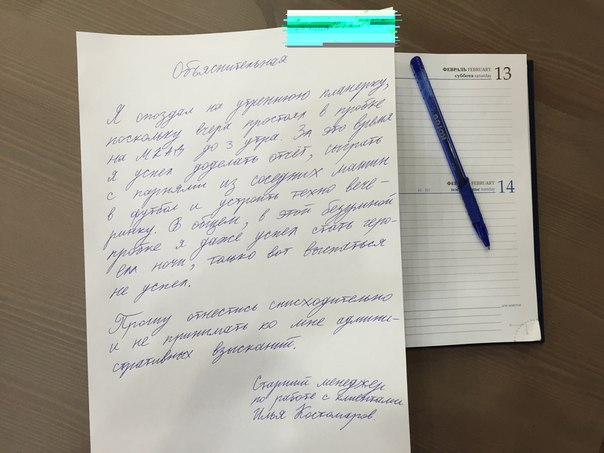 Объяснительная
Я опоздал на утреннюю планерку,
поскольку вчера простоял в пробке
на МКАД до 3 утра. За это время
я успел доделать отчет, сыграть
с парнями из соседних машин
в футбол и устроить техно вече-
ринку. В общем, в этой безумной
пробке я даже успел стать геро-
ем ночи, только вот выспаться
не успел.
Прошу отнестись снисходительно
и не принимать ко мне админи-
стративных взысканий.
Старший менеджер
по работе с клиентами
Илья Костомаров.
ФЕВРАЛЬ FEBRUARY
суббота saturday 13
ФЕВРАЛЬ FEBRUARY
14